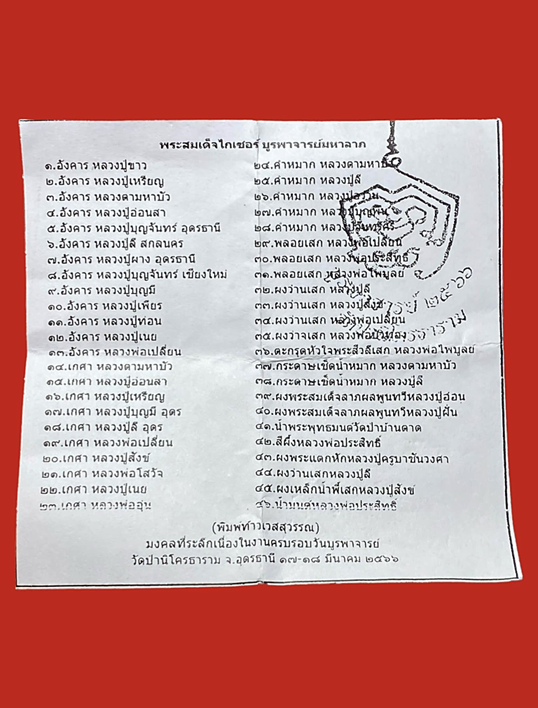 พระสมเด็จไกเซอร์ บูรพาจารย์มหาลาภ
๑.อังคาร หลวงปู่ขาว
๒.อังคาร หลวงปู่เหรียญ
๓.อังคาร หลวงตามหาบัว
๔.อังคาร หลวงปู่อ่อนสา
๕.อังคาร หลวงปู่บุญจันทร์ อุดรธานี
๖.อังคาร หลวงปู่ลี สกลนคร
๗.อังคาร หลวงปู่ผาง อุดรธานี
๘.อังคาร หลวงปู่บุญจันทร์ เชียงใหม่
๙.อังคาร หลวงปู่บุญมี
๑๐.อังคาร หลวงปู่เพียร
๑๑.อังคาร หลวงปู่ท่อน
๑๒.อังคาร หลวงปู่เนย
๑๓.อังคาร หลวงพ่อเปลี่ยน
๑๔.เกศา หลวงตามหาบัว
๑๕.เกศา หลวงปู่อ่อนสา
๑๖.เกศา หลวงปู่เหรียญ
๑๗.เกศา หลวงปู่บุญมี อุดร
๑๘.เกศา หลวงปู่ลี อุดร
๑๙.เกศา หลวงพ่อเปลี่ยน
๒๐.เกศา หลวงปู่สังข์
๒๑.เกศา หลวงพ่อโสวัจ
๒๒.เกศา หลวงปู่เนย
๒๓.เกศา หลวงพ่ออุ่น
๒๔.คำหมาก หลวงตามหาบัว
๒๕.คำหมาก หลวงปู่ลี
๒๖.คำหมาก
๒๗.คำหมาก หลวงปู่บุญพิน
๒๘.คำหมาก หลวงปู่จันทร์ศรี
๒๙.พลอยเสก หลวงพ่อเปลี่ยน
๓๐.พลอยเสก หลวงพ่อประสิทธิ์
๓๑.พลอยเสก หลวงพ่อไพบูลย์
๓๒.ผงว่านเสก หลวงปู่ลี
๓๓.ผงว่านเสก หลวงปู่สังข์
๓๔.ผงว่านเสก หลวงพ่อเปลี่ยน
๓๕.ผงว่านเสก
๓๖.ตะกรุดหัวใจพระสีวลีเสก หลวงพ่อไพบูลย์
๓๗.กระดาษเช็ดน้ำหมาก หลวงตามหาบัว
๓๘.กระดาษเช็ดน้ำหมาก หลวงปู่ลี
๓๙.ผงพระสมเด็จลาภผลพูนทวีหลวงปู่อ่อน
๔๐.ผงพระสมเด็จลาภผลพูนทวีหลวงปู่ฝั้น
๔๑.น้ำพระพุทธมนต์วัดป่าบ้านตาด
๔๒.สีผึ้งหลวงพ่อประสิทธิ์
๔๓.ผงพระแตกหักหลวงปู่ครูบาขันวงศา
๔๔.ผงว่านเสกหลวงปู่ลี
๔๕.ผงเหล็กน้ำพี้เสกหลวงปู่สังข์
๔๖.น้ำมนต์หลวงพ่อประสิทธิ์
(พิมพ์ท้าวเวสสุวรรณ)
มงคลที่ระลึกเนื่องในงานครบรอบวันบูรพาจารย์
วัดป่านิโครธาราม จ.อุดรธานี ๑๗-๑๘ มีนาคม ๒๕๖๖